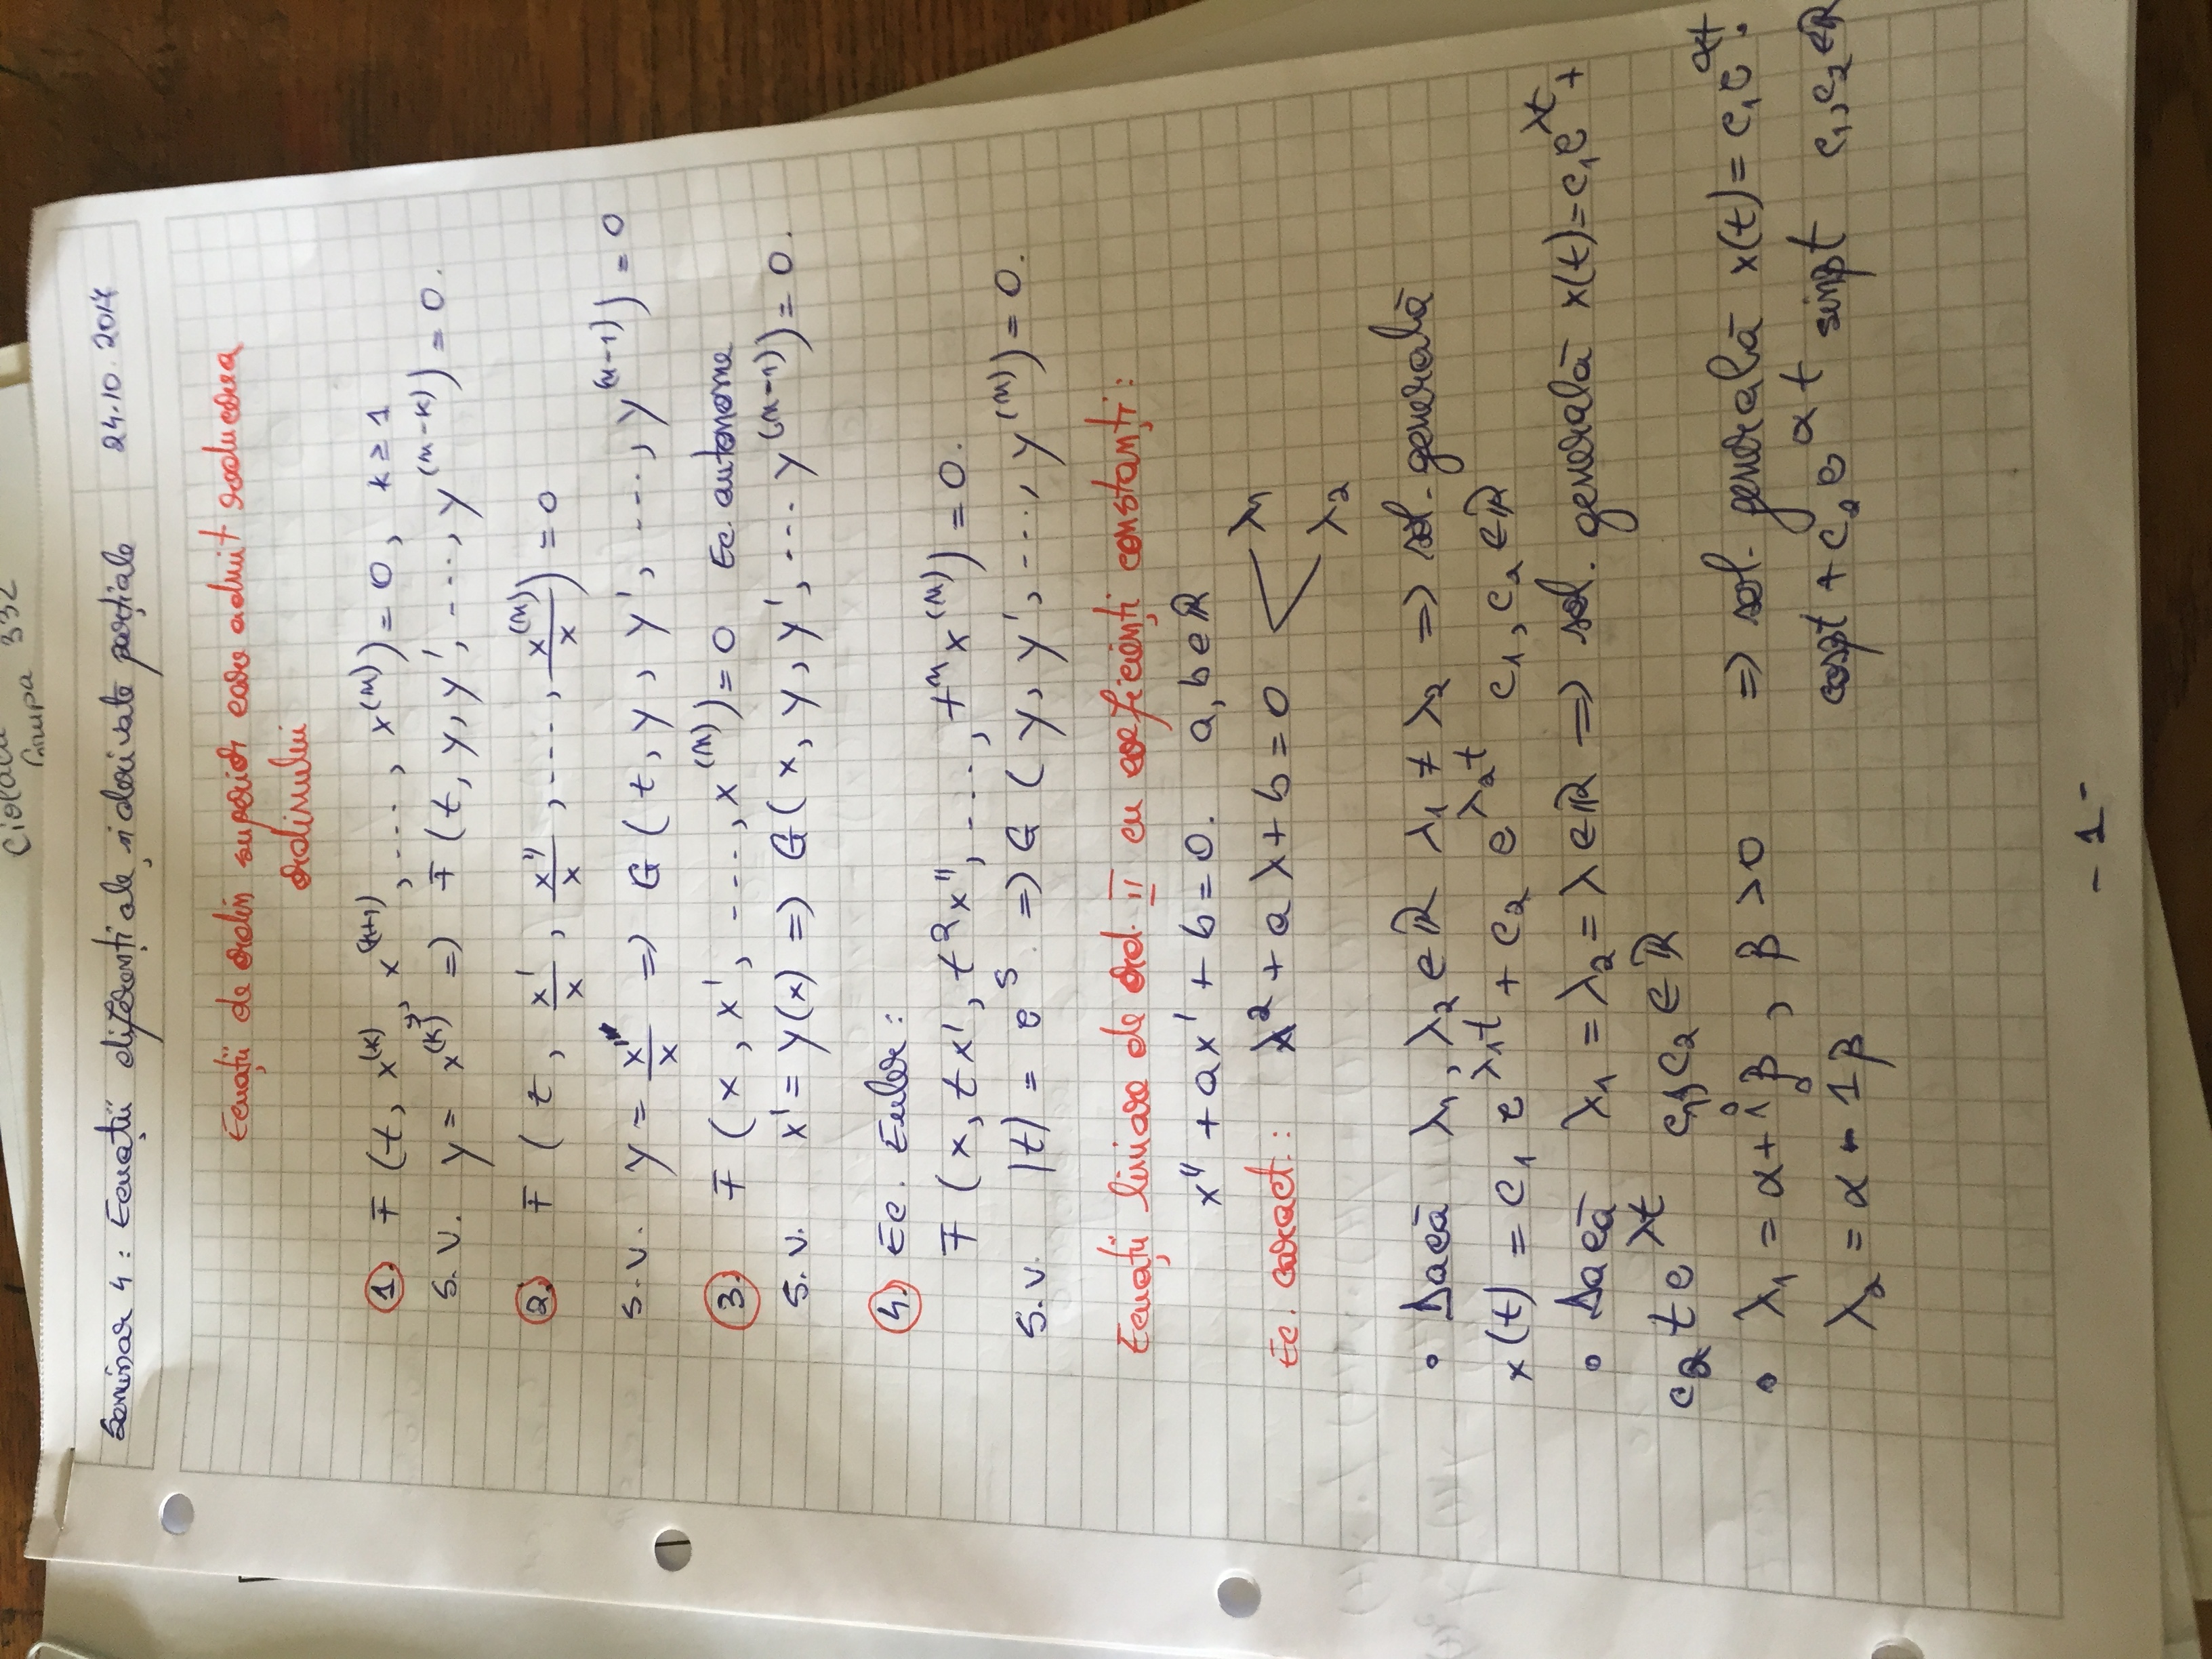 Grupa 332
Seminar 4: Ecuații diferențiale și derivate parțiale 24.10.2017
Ecuații de ordin superior care admit reducerea
ordinului
1. F (t, x^(k), x^(k+1), ..., x^(n)) = 0, k ≥ 1
S.V. y = x^(k) => F (t, y, y', ..., y^(n-k)) = 0.
2. F (t, x'/x, x''/x, ..., x^(n)/x) = 0
S.V. y = x'/x => G (t, y, y', ..., y^(n-1)) = 0
3. F (x, x', ..., x^(n)) = 0 Ec. autonome
S.V. x' = y(x) => G (x, y, y', ... y^(n-1)) = 0.
4. Ec. Euler:
F (x, tx', t²x'', ..., t^n x^(n)) = 0.
S.V. |t| = e^s. => G (y, y', ..., y^(n)) = 0.
Ecuații liniare de ord. II cu coeficienți constanți:
x'' + ax' + b = 0. a, b ∈ ℝ
Ec. caract.: λ² + aλ + b = 0 < λ₁
λ₂
• Dacă λ₁, λ₂ ∈ ℝ λ₁ ≠ λ₂ => sol. generală
x(t) = c₁ e^λ₁t + c₂ e^λ₂t c₁, c₂ ∈ ℝ
• Dacă λ₁ = λ₂ = λ ∈ ℝ => sol. generală x(t) = c₁e^λt +
c₂ t e^λt c₁, c₂ ∈ ℝ
• λ₁ = α + iβ, β > 0 => sol. generală x(t) = c₁e^αt ·
λ₂ = α - iβ cosβt + c₂ e^αt sinβt c₁, c₂ ∈ ℝ
- 1 -